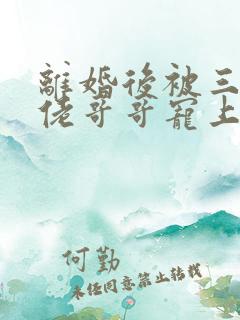 離婚後被三
佬哥哥寵上
何勤
未經同意禁止轉載